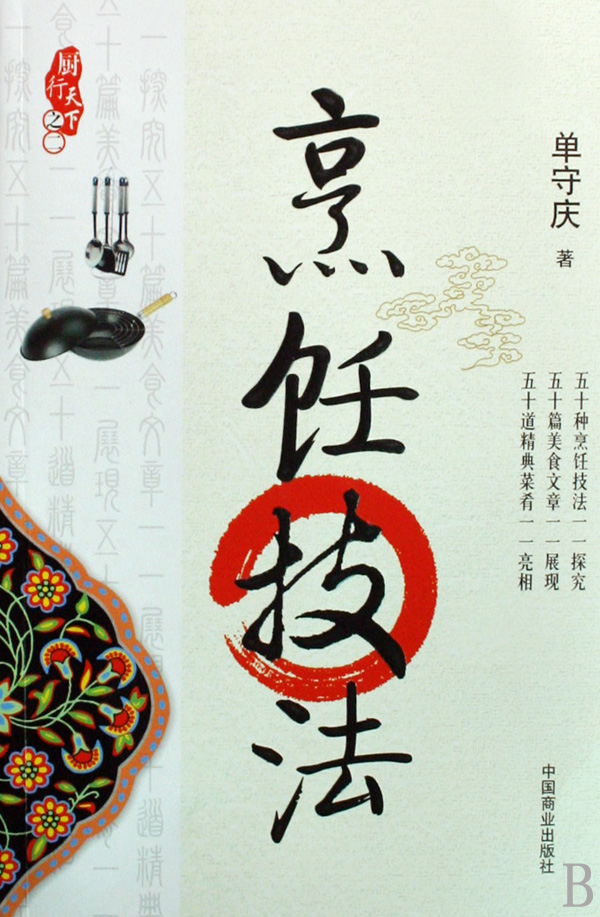 厨行天下
之二
烹饪技法
单守庆
著
五十种烹饪技法一一探究
五十篇美食文章一一展现
五十道精典菜肴一一亮相
中国商业出版社
B